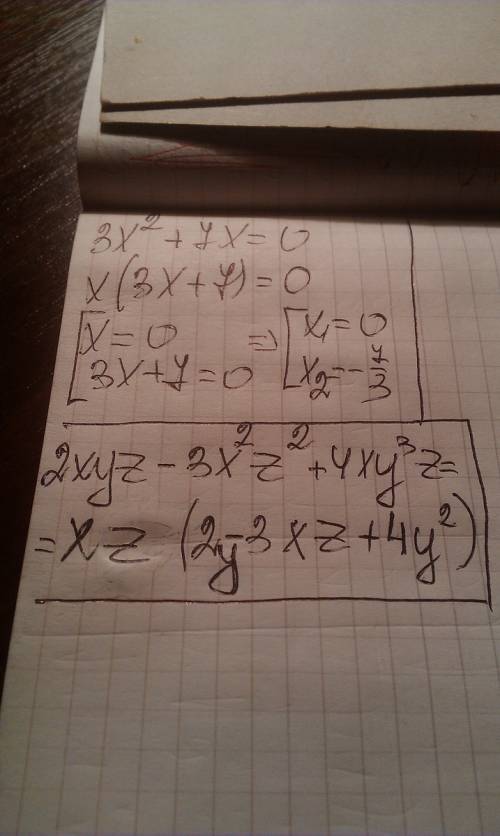 3x² + 7x = 0
x(3x + 7) = 0
[x = 0 => [x₁ = 0
[3x + 7 = 0 [x₂ = -7/3
2xyz - 3x²z² + 4xy³z =
= xz (2y - 3xz + 4y²)